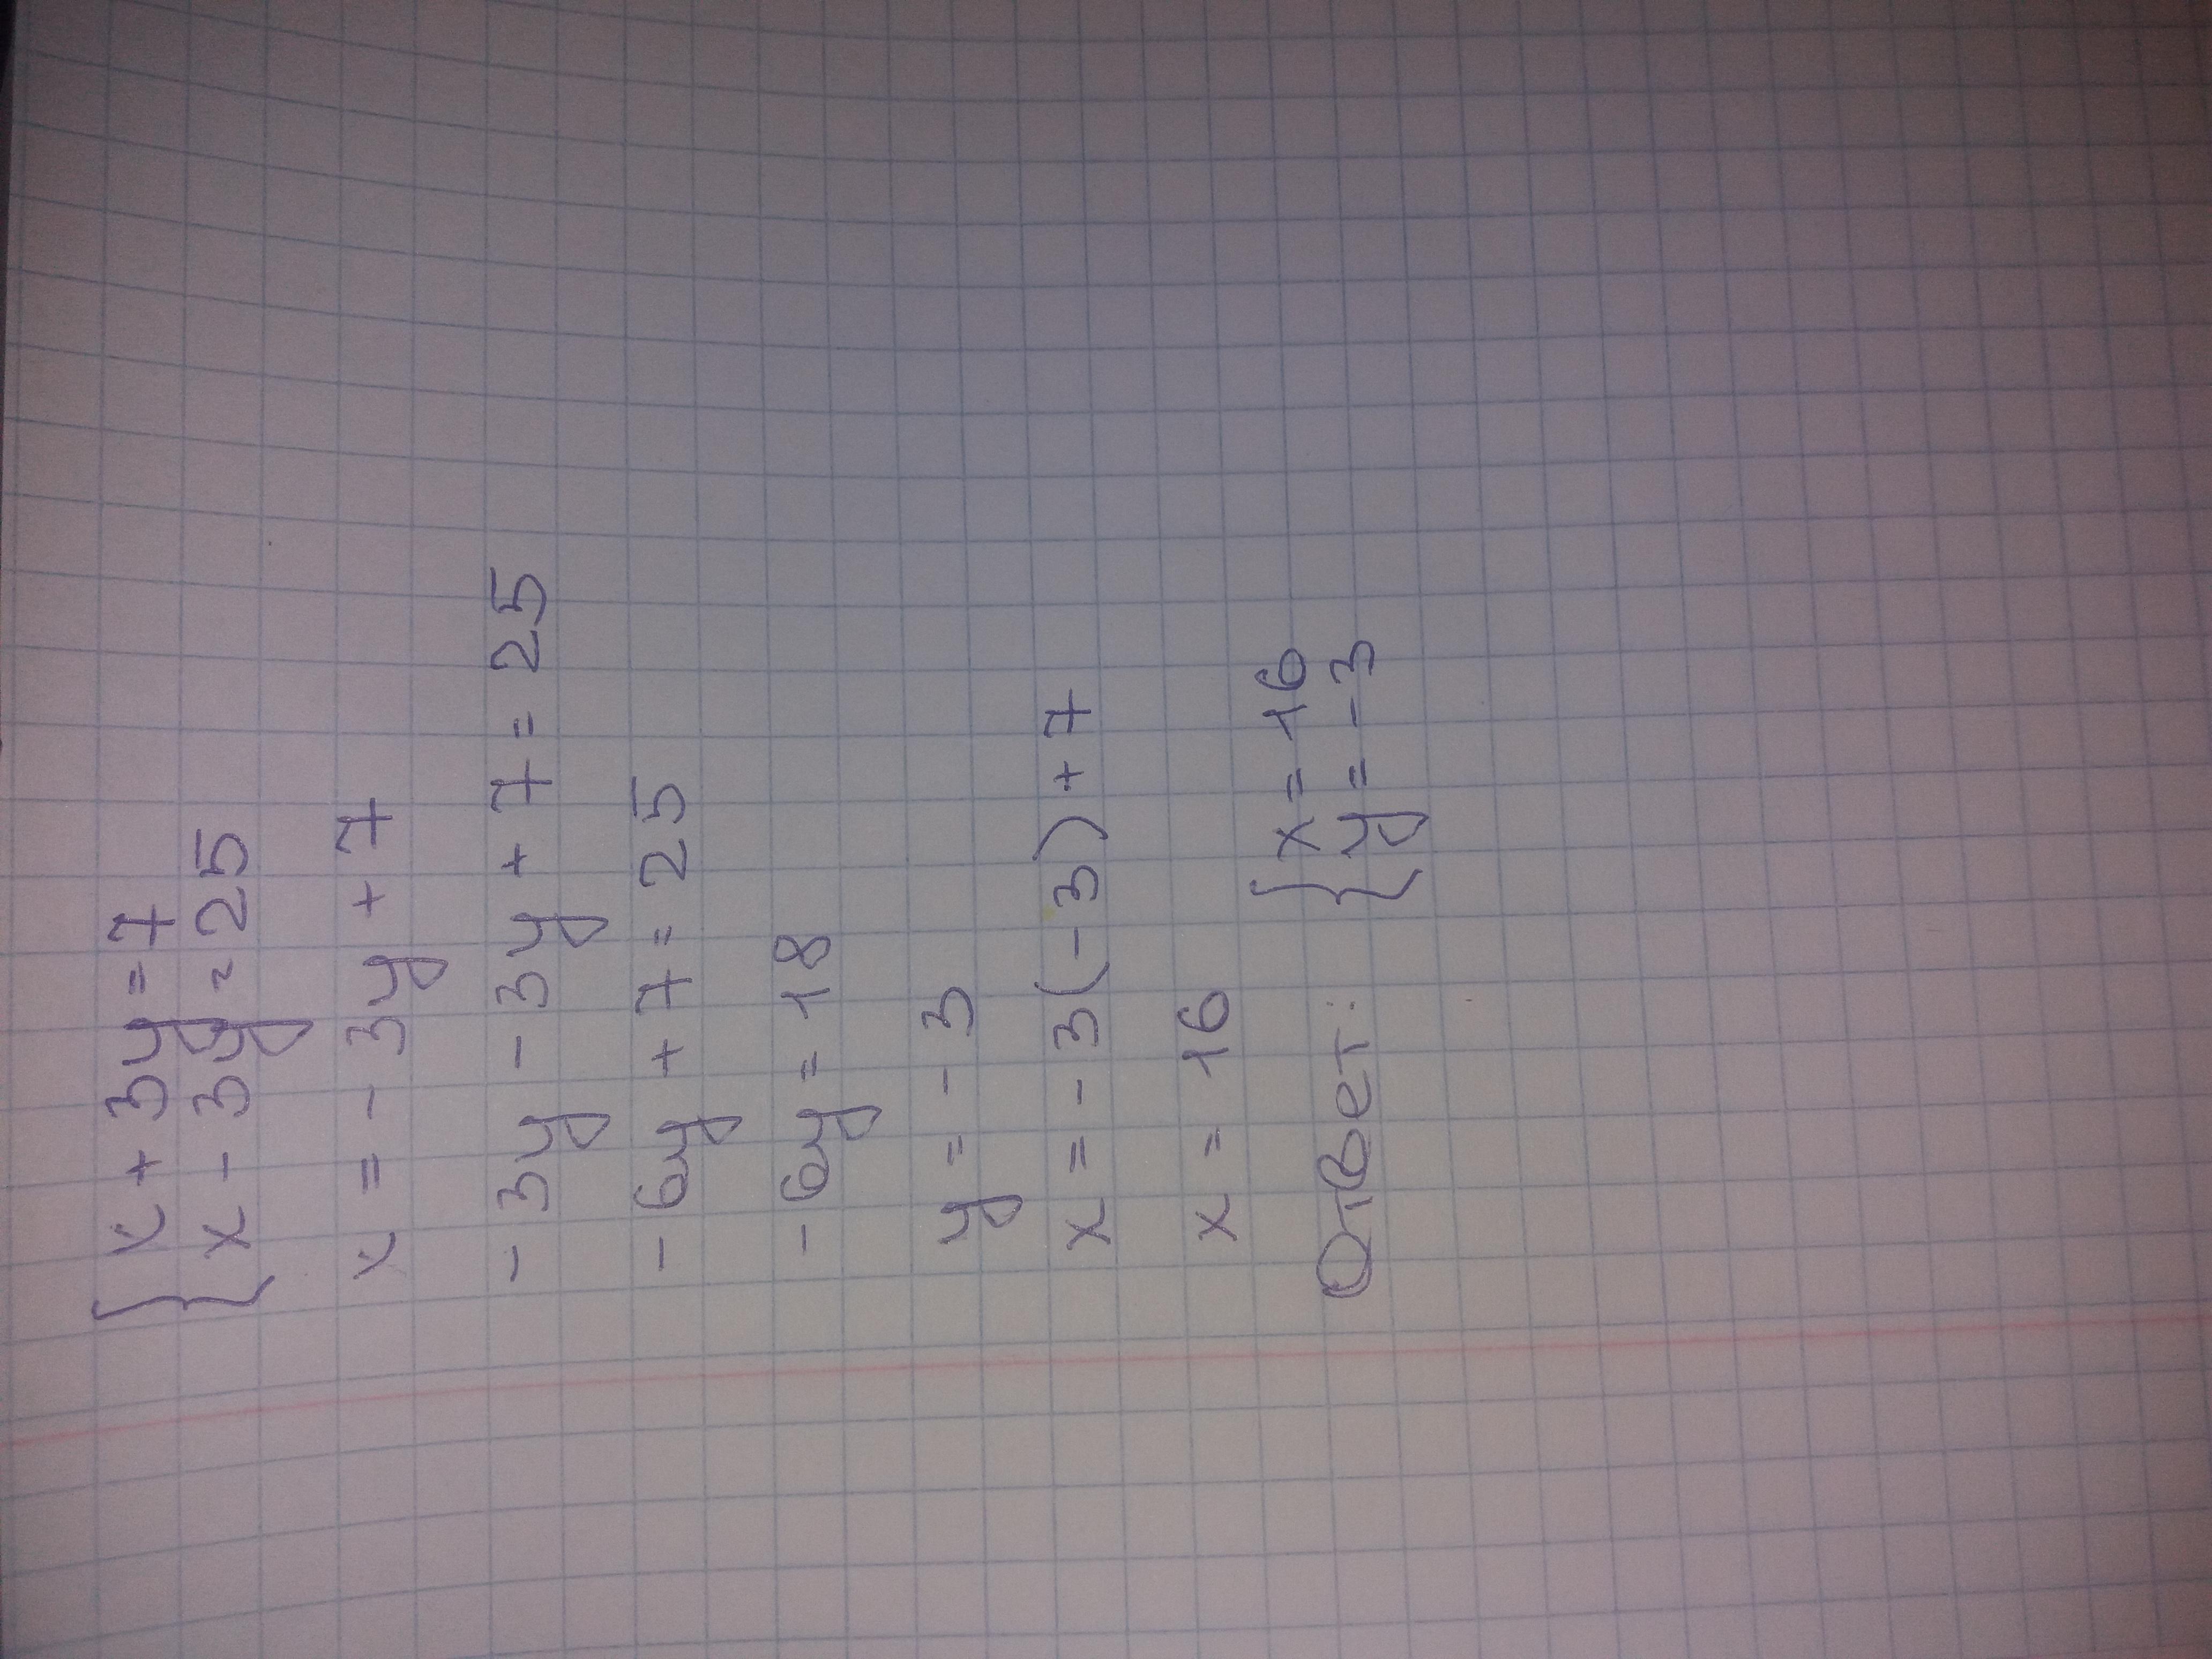 { x + 3y = 7
x - 3y = 25
x = - 3y + 7
- 3y - 3y + 7 = 25
- 6y + 7 = 25
- 6y = 18
y = - 3
x = - 3(-3) + 7
x = 16
Ответ: { x = 16
y = -3